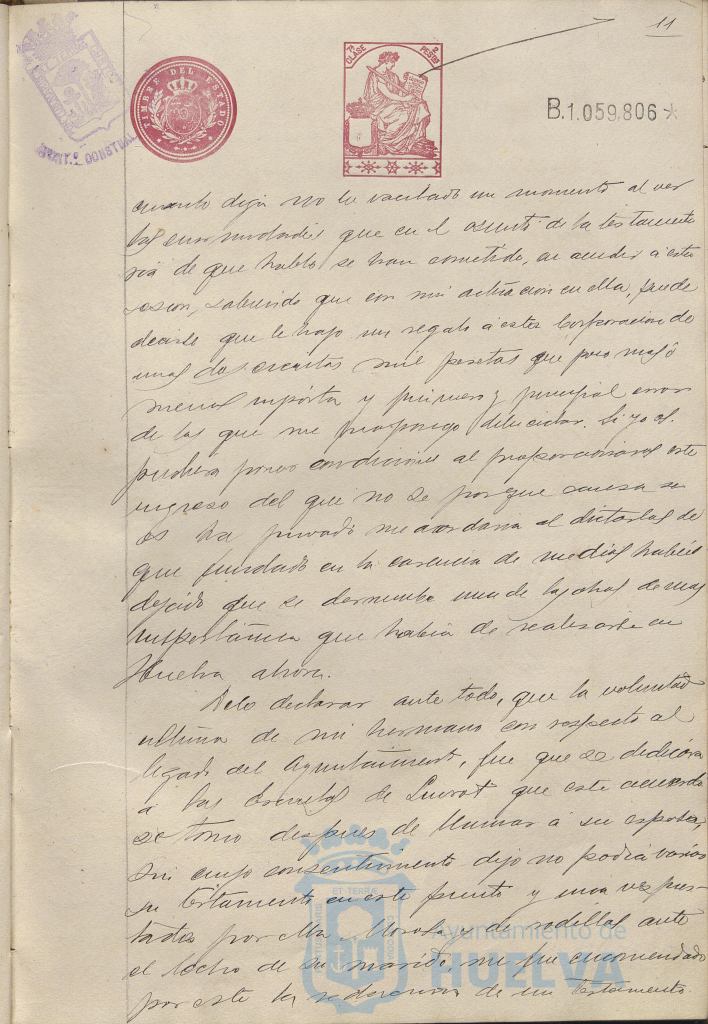 11
TIMBRE DEL ESTADO
7ª CLASE 2 PESTAS
B.1.059.806*
AYUNT.º CONSTNAL
cuanto dejá no he vacilado un momento al ver
las enormidades que en el asunto de la testamenta
ria de que hablo se han cometido, en acudir á esta
sesion, sabiendo que con mi actuacion en ella, puede
decirse que le hago un regalo á esta Corporacion de
unas doscientas mil pesetas que poco mas ó
menos importa
de las que me propongo
pudiera poner condiciones al proporcionaros este
ingreso del que no se porque causa se
os ha privado me acordaria al dictarlas de
que fundado en la carencia de medios habeis
dejado que se derrumbe una de las obras de mas
importancia que habia de realizarse en
Huelva ahora.
Debo declarar ante todo, que la voluntad
ultima de mi hermano con respecto al
legado del Ayuntamiento, fue que se dedicara
á las Escuelas de que este acuerdo
se tomo despues de llamar á su esposa,
sin cuyo consentimiento dijo no podia variar
su testamento en este punto y una vez pres-
tado por y de rodillas ante
el lecho de su marido, me fue encomendado
por este la redaccion de un testamento.
ET TERRÆ
Ayuntamiento de
HUELVA